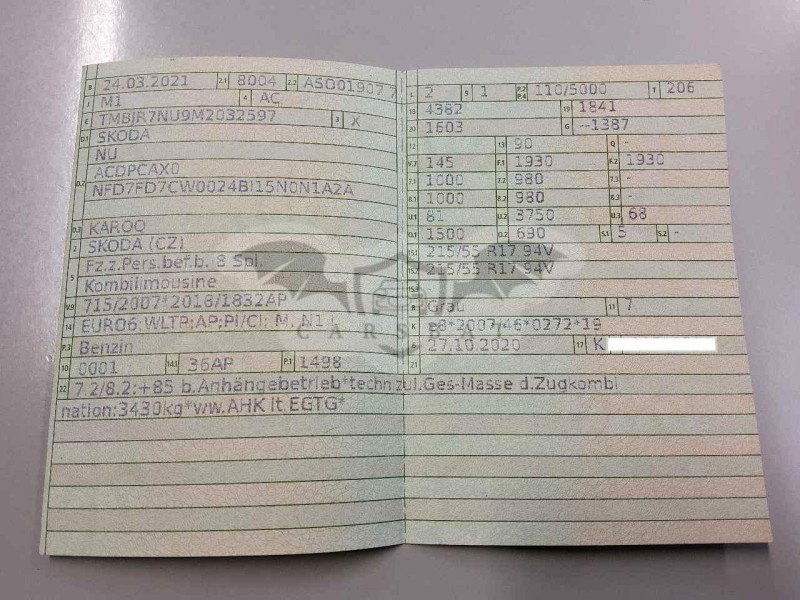 B 24.03.2021 2.1 8004 2.2
J M1 4 AC
E TMBJR7NU9M2032597 3 X
D.1 SKODA
NU
D.2 ACDPCAX0
NFD7FD7CW0024BI15N0N1A2A
D.3 KAROQ
2 SKODA (CZ)
5 Fz.z.Pers.bef.b. 8 Spl.
Kombilimousine
V.9 715/2007*2018/1832AP
14 EURO6;WLTP;AP;PI/CI; M, N1 I
P.3 Benzin
10 0001 14.1 36AP P.1 1498
22 7.2/8.2:+85 b.Anhängebetrieb*techn.zul.Ges-Masse d.Zugkombi
nation:3430kg*v/w.AHK lt.EGTG*
L 2 9 1 P.2 P.4 110/5000 T 206
18 4382 19 1841
20 1603 G --1387
12 - 13 90 Q -
V.7 145 F.1 1930 F.2 1930
7.1 1000 7.2 980 7.3 -
8.1 1000 8.2 980 8.3 -
U.1 81 U.2 3750 U.3 68
O.1 1500 O.2 690 S.1 5 S.2 -
15.1 215/55 R17 94V
15.2 215/55 R17 94V
15.3 -
R Grau 11 7
K e8*2007/46*0272*19
6 27.10.2020 17 K
21
CARS